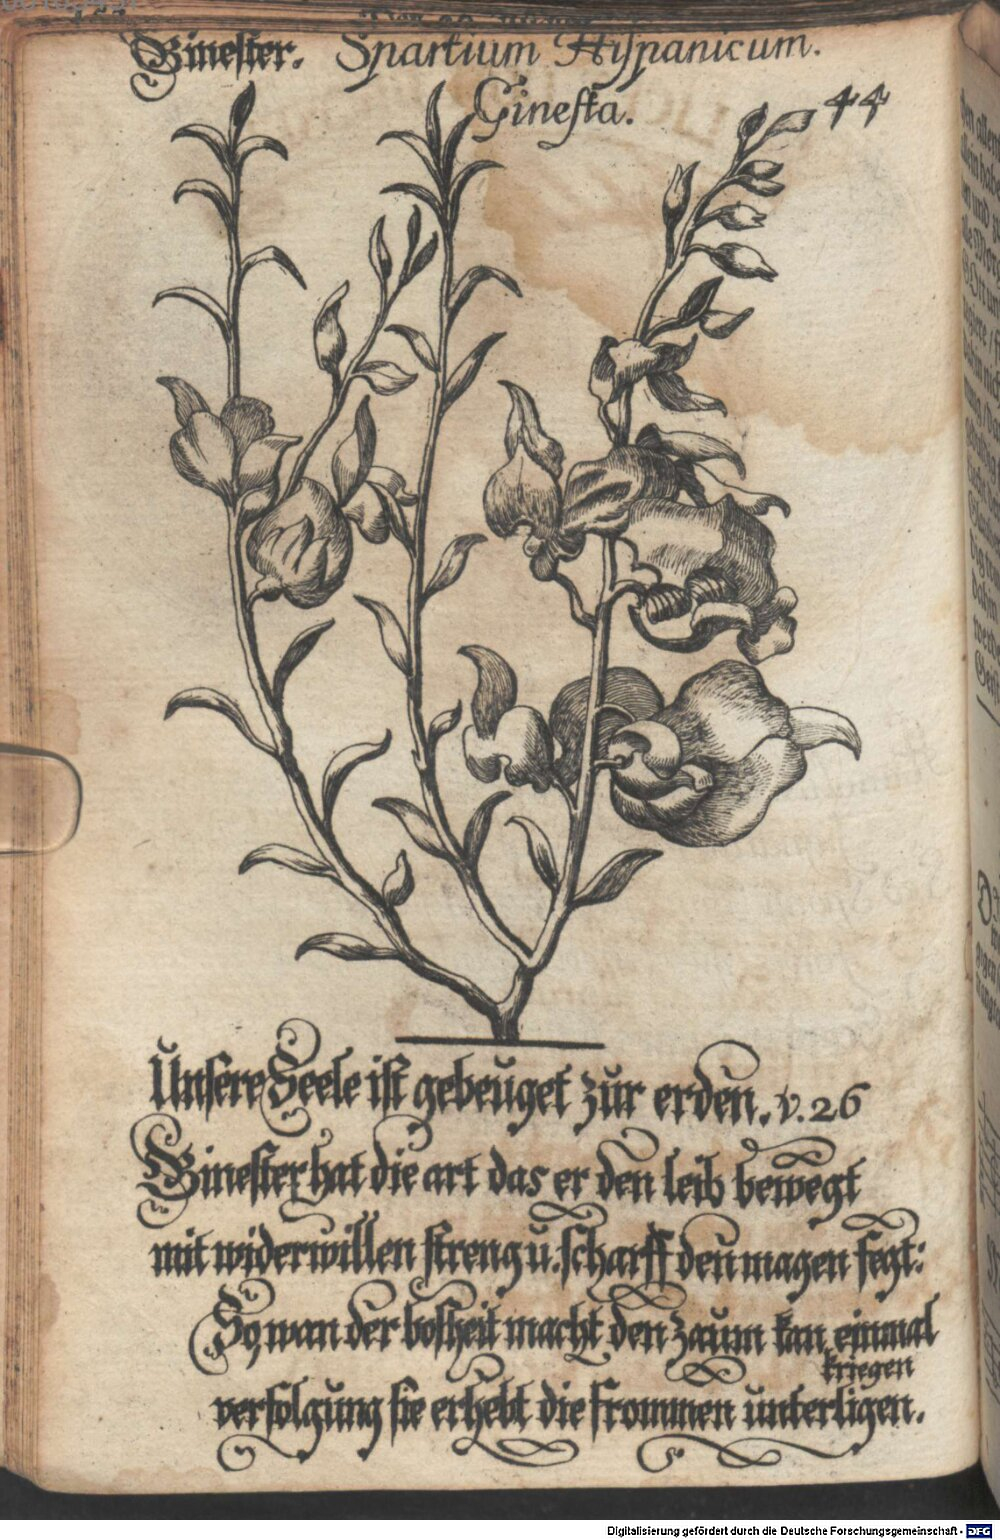 Ginester. Spartium Hispanicum.
Ginesta. 44
Unsere Seele ist gebeuget zur erden. v. 26
Ginester hat die art das er den leib bewegt
mit widerwillen streng u. scharff den magen fegt:
So wan der bosheit macht den zaum kan einmal
kriegen
verfolgung sie erhebt die frommen unterligen.
Digitalisierung gefördert durch die Deutsche Forschungsgemeinschaft - DFG